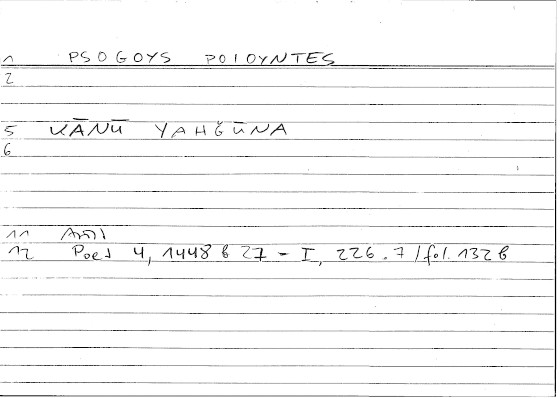 1 PSOGOYS POIOYNTES
2
5 KĀNŪ YAHǦŪNA
6
11 Arist
12 Poet 4, 1448 b 27 - I, 226.7 / fol. 132 b